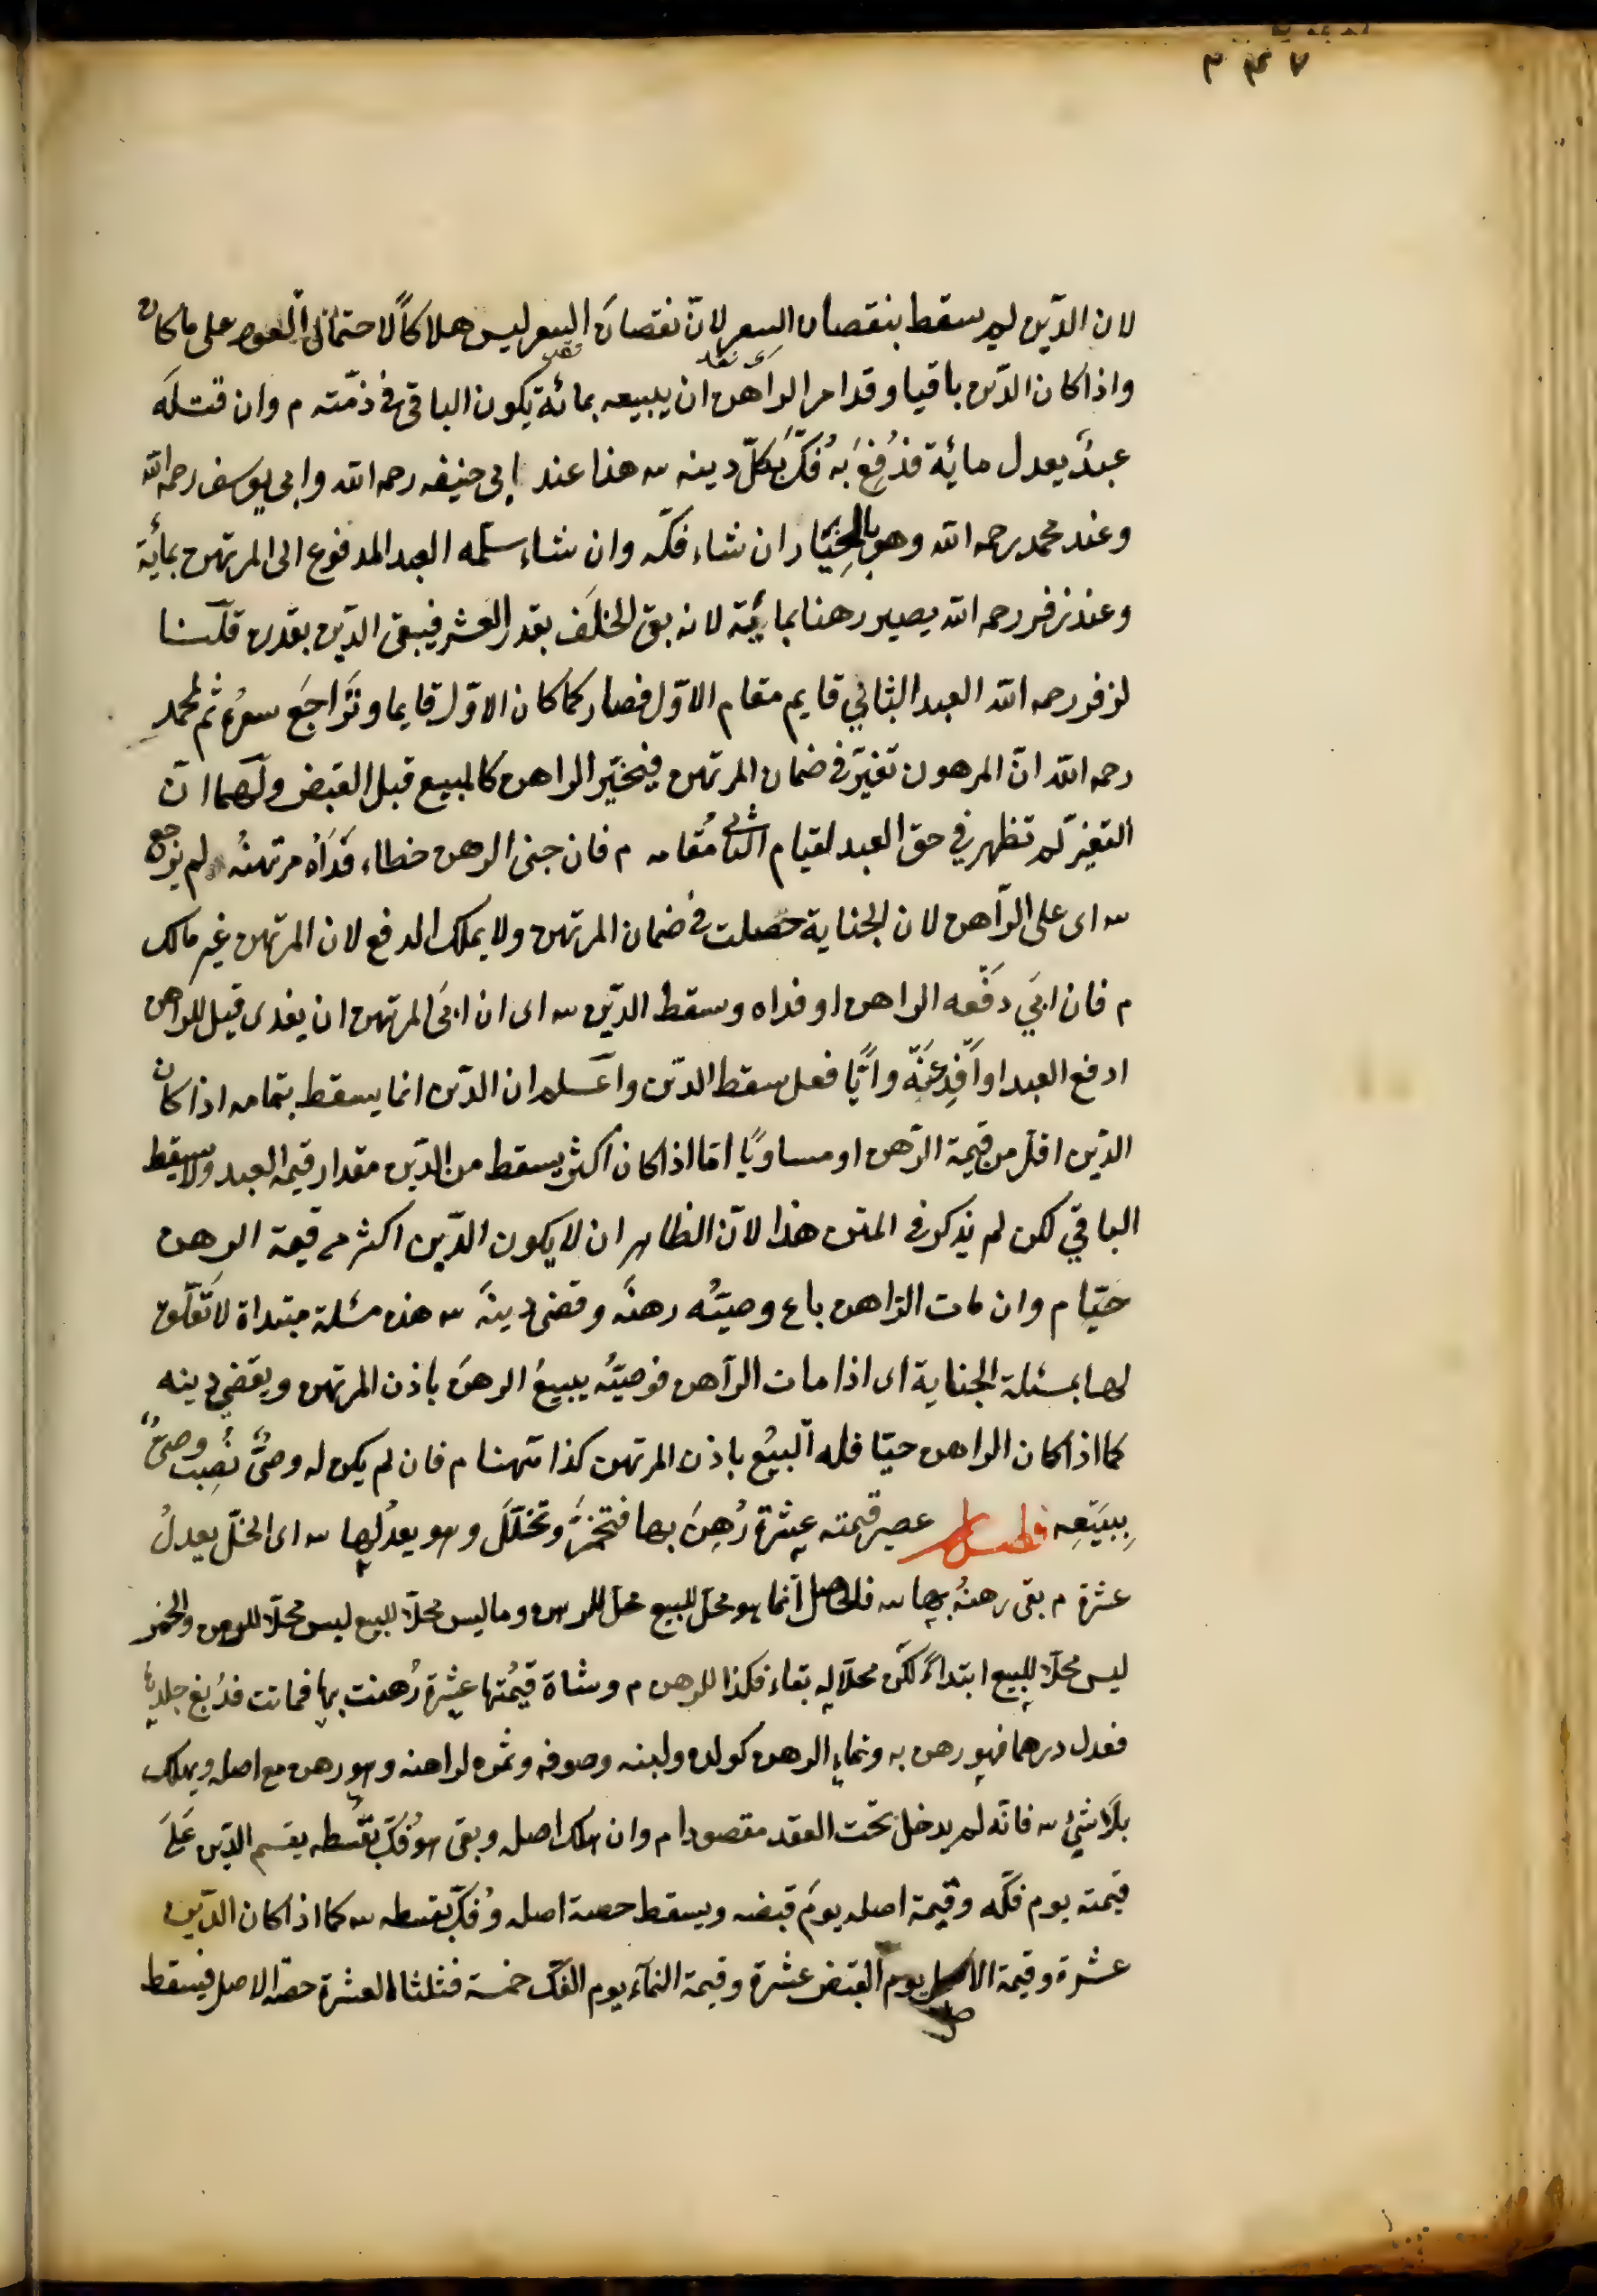 ٣٤٧
لان الدّين لم يسقط بنقصان السعر لانّ نقصانَ السعر ليس هلاكاً لاحتمال العود على ما كان
واذا كان الدّين باقيا وقد امر الراهن ان يبيعه بمائة يكون الباقي في ذمّته م وان قتله
عبدٌ يعدل مائة فدُفِعَ به فُكّ بكلّ دينه س هذا عند ابي حنيفه رحمه الله وابى يوسف رحمه الله
وعند محمد رحمه الله وهو بالخِيَار ان شاء فكّه وان شاء سلّمه العبد المدفوع الى المرتهن بمائة
وعند زفر رحمه الله يصير رهنا بمائة لانه بقى الخلَف بقدر العشر فيبقى الدّين بقدره قلنا
لزفر رحمه الله العبد الثاني قايم مقام الاوّل فصار كما كان الاوّل قايما وتَراجَع سعرُه ثم لمحمد
رحمه الله انّ المرهون تغيّر في ضمان المرتهن فيخيّر الراهن كالمبيع قبل القبض ولهما انّ
التغيّر لم تظهر في حق العبد لقيام الثاني مُقامه م فان جنى الرهن خطاء فَدَاهُ مرتهنُه ولم يرجع
س اى على الرّاهن لان الجناية حصلت في ضمان المرتهن ولا يملك الدفع لان المرتهن غير مالك
م فان ابَي دفعه الراهن او فداه وسقط الدّين س اى ان ابَى المرتهن ان يفدى قيل للراهن
ادفع العبد او اَفْدِ عَنْه وايًّا فعل سقط الدّين واعلم ان الدّين انما يسقط بتمامه اذا كان
الدّين اقلّ من قيمة الرّهن او مساويًا امّا اذا كان اكثر يسقط من الدّين مقدار قيمة العبد ولا يسقط
الباقي لكن لم يذكر في المتن هذا لانّ الظاهر ان لا يكون الدّين اكثر من قيمة الرهن
حيّا م وان مات الرّاهن باع وصيّه رهنَه وقضى دينَه س هذه مسئلة مبتداة لا تَعلّق
لها بمسئلة الجناية اى اذا مات الرّاهن فوصيّه يبيعُ الرهنَ باذن المرتهن ويقضي دينه
كما اذا كان الراهن حيّا فله البيعُ باذن المرتهن كذا ههنا م فان لم يكن له وصىٌّ نُصِبَ وصىٌّ
بِبيعِه فصل عصير قيمته عشرة رُهِنَ بها فتخمّرَ وتخلّلَ وهو يعدلُها س اى الخلّ يعدلُ
عشرة م بقى رهنُه بها س فالحاصل انّما هو محلّ للبيع محلّ للرهن وما ليس محلّا للبيع ليس محلّا للرهن والخمر
ليس محلّا للبيع ابتداءً لكنّ محلّا له بقاء فكذا للرهن م وشاة قيمُتها عشرة رُهنت بها فماتت فدُبغ جلدها
فعدل درهما فهو رهن به ونماء الرهن كولده ولبنه وصوفه وثمره لراهنه وهو رهن مع اصله ويهلك
بلا شئ س فانّه لم يدخل تحت العقد مقصودا م وان هلك اصله وبقى هو فُكّ بقسطه يقسم الدّين علَى
قيمته يوم فكّه وقيمة اصله يومَ قبضه ويسقط حصة اصله وفُكّ بقسطه س كما اذا كان الدّين
عشرة وقيمة الاصل يوم القبض عشرة وقيمة النمآء يوم الفكّ خمسة فثلثا العشرة حصّة الاصل فيسقط